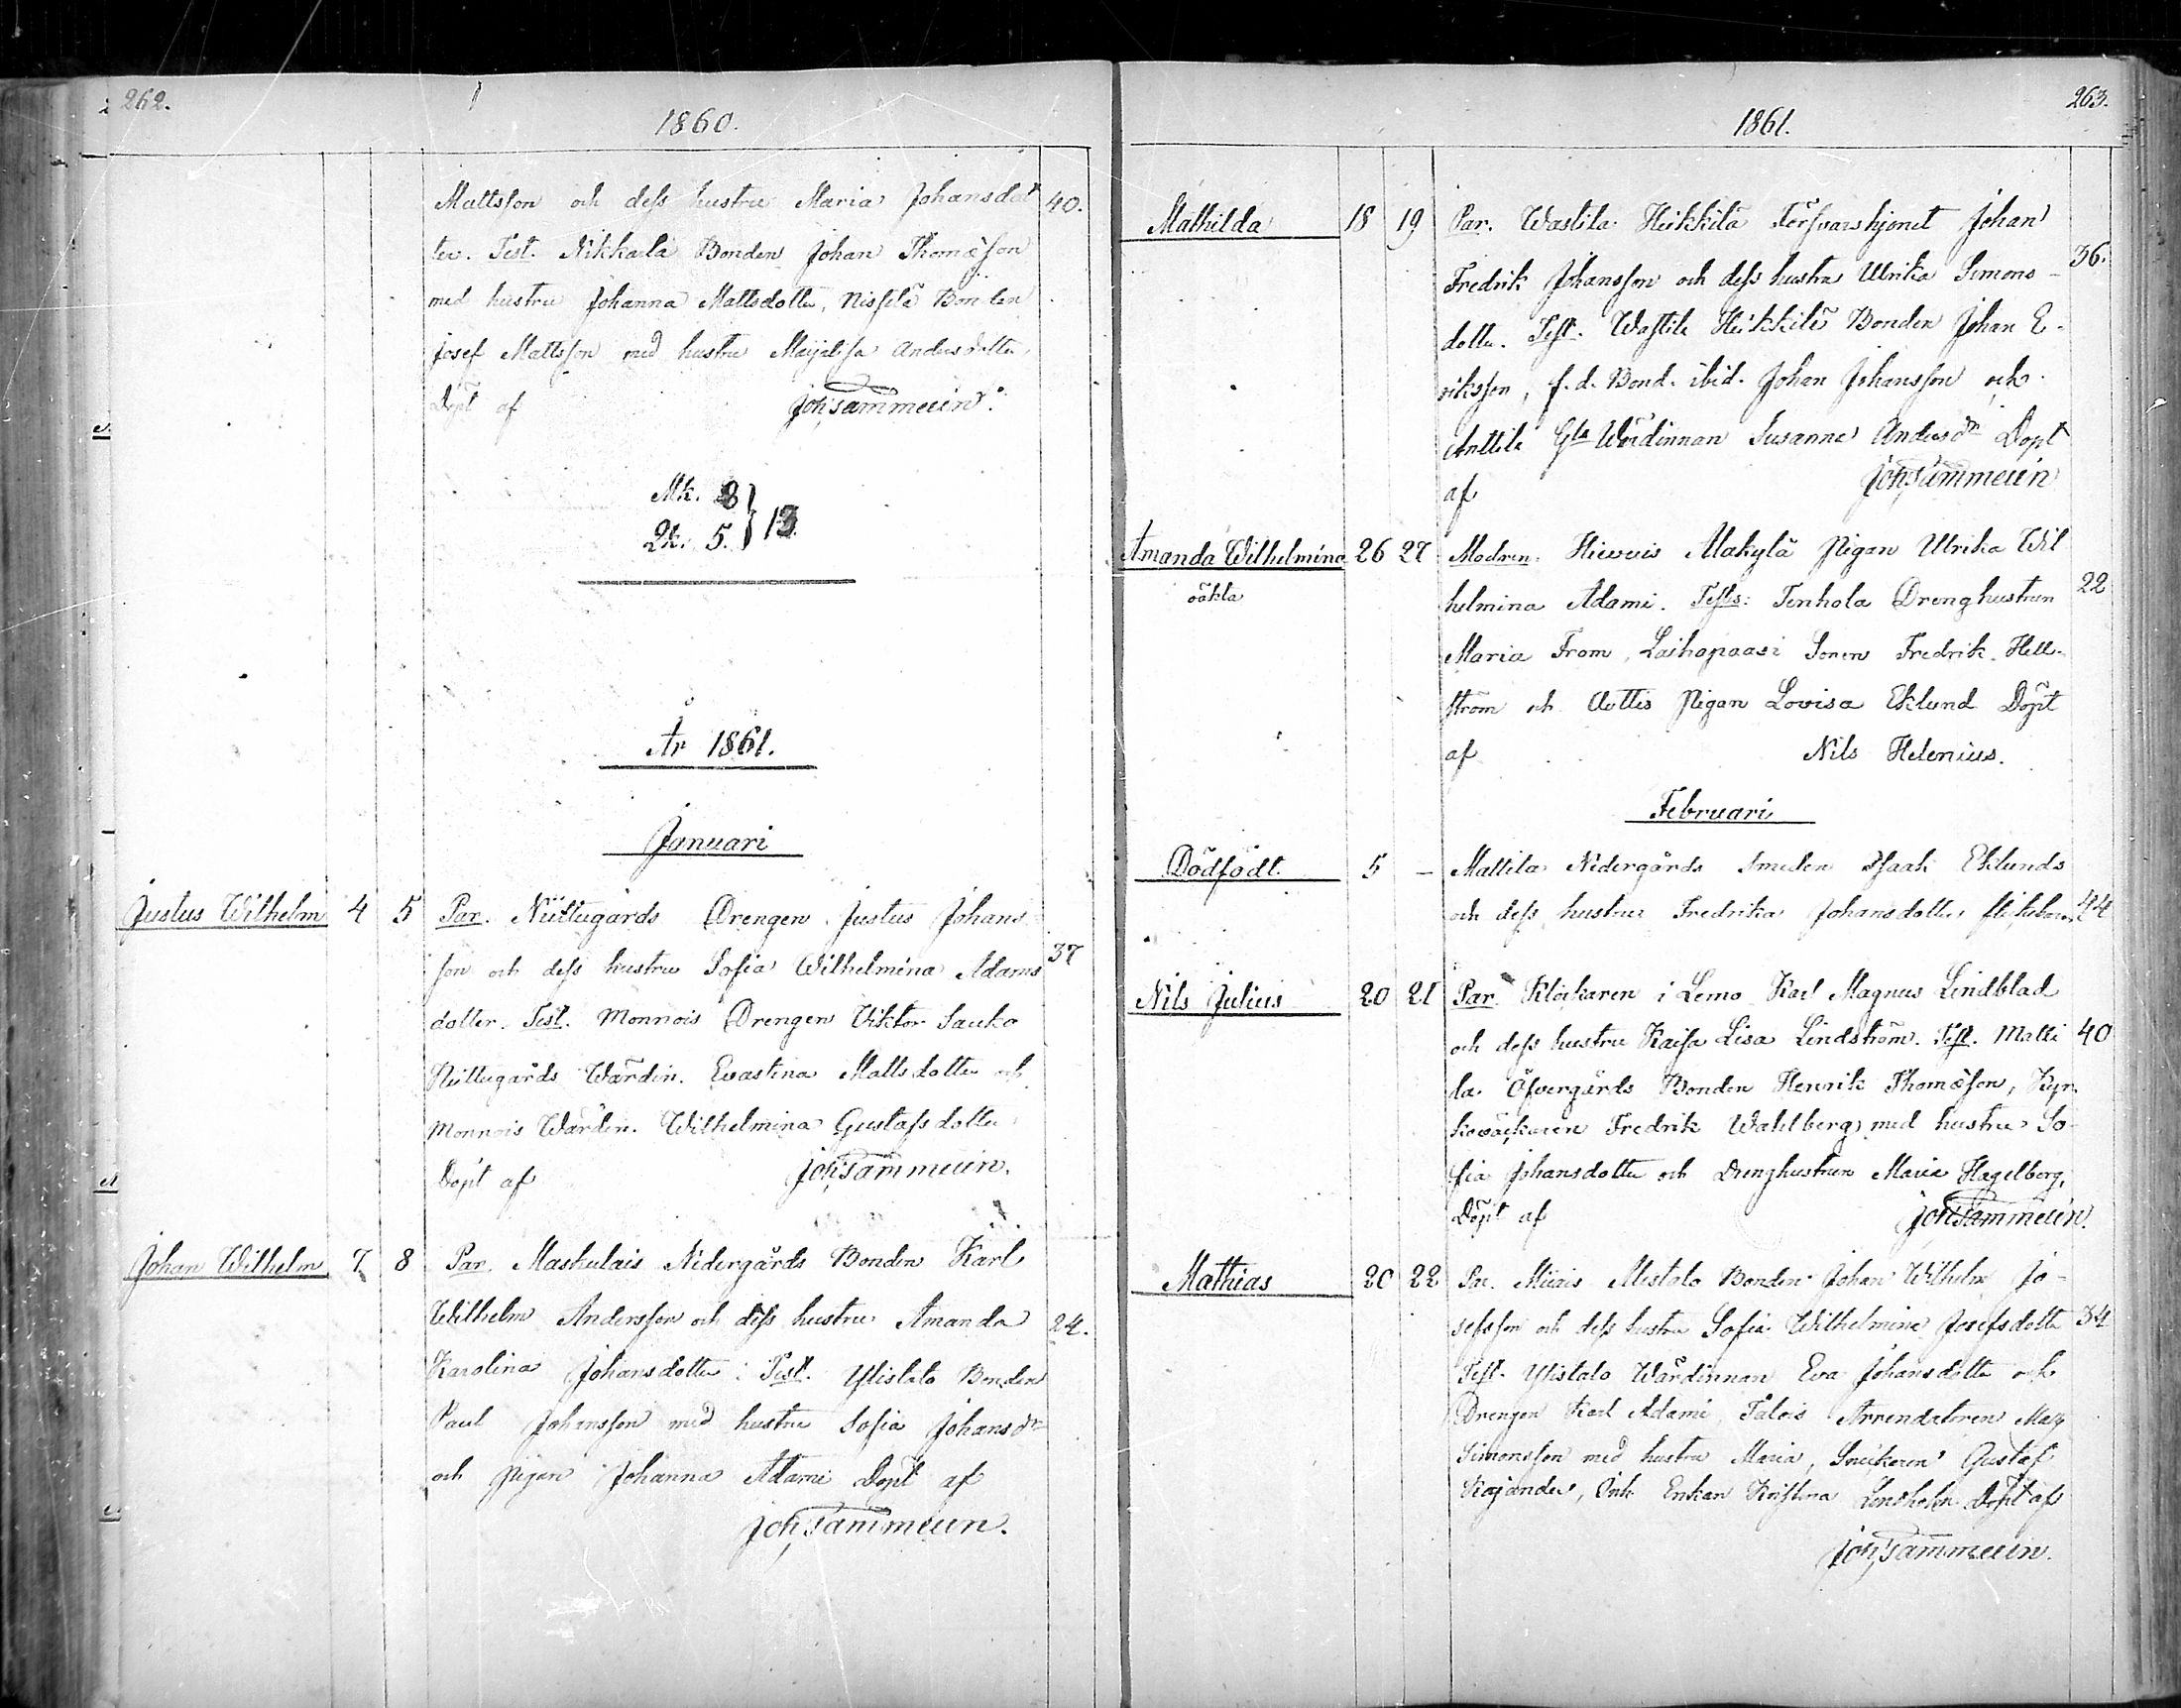 262.
1860.
Mattsson och dess hustru Maria Johansdot 40.
ter. Test. Nikkarla Bonden Johan Thomæson
med hustru Johanna Mattsdotter, Nissilä Bonden
Josef Mattsson med hustru Maijalisa Andersdotter,
Döpt af Joh; Tammelin.
Mk. 8
Qk. 5. } 13.
År 1861.
Januari
Justus Wilhelm 4 5 Par. Niittugårds Drengen Justus Johans
son och dess hustru Sofia Wilhelmina Adams 37
dotter. Test. Monnois Drengen Viktor Sauko
Niittugårds Wärdin. Evastina Mattsdotter och
Monnois Wärdin. Wilhelmina Gustafsdotter
Döpt af Joh; Tammelin.
Johan Wilhelm 7 8 Par. Maskulais Nidergårds Bonden Karl
Wilhelm Andersson och dess hustru Amanda 24.
Karolina Johansdotter: Test. Ylistalo Bonden
Paul Johansson med hustru Sofia Johansdr
och pigan Johanna Adami Döpt af
Joh; Tammelin.
263.
1861.
Mathilda 18 19 Par. Wastila Heikkilä Försvarshjonet Johan
Fredrik Johansson och dess hustru Ulrika Simons- 36.
dotter. Test. Wastila Heikkilä Bonden Johan E-
riksson, f.d. Bond. ibid. Johan Johansson och
Anttila Gla Wärdinnan Susanna Andersdr Döpt
af Joh; Tammelin
Amanda Wilhelmina 26 27 Modren. Hiewois Alakylä Pigan Ulrika Wil
oäkta
helmina Adami. Tests: Tenhola Drenghustrun 22
Maria From, Laihapaasi Sonen Fredrik Hell-
ström och Anttis Pigan Lovisa Eklund Döpt
af Nils Helenius.
Februari
Dödfödt. 5 – Mattila Nidergårds Smeden Isaak Eklunds
och dess hustrus Fredrika Johansdotters 44
Nils Julius 20 21 Par. Klockaren i Lemo Karl Magnus Lindblad
och dess hustru Kaisa Lisa Lindström. Test. Matti 40
la Öfvergårds Bonden Henrik Thomæson, Kyr
kowäktaren Fredrik Wahlberg med hustru So-
fia Johansdotter och Drenghustrun Maria Hagelberg,
Döpt af Joh; Tammelin.
Mathias 20 22 Par. Miiais Alistalo Bonden Johan Wilhelm Jo-
sefsson och dess hustru Sofia Wilhelmina Josefsdotter 34
Test. Ylistalo Wärdinnan Eva Johansdotter och
Drengen Karl Adami, Talois Arrendatoren Mats
Simonsson med hustru Maria, Snickaren Gustaf
Kajander, Enkan Kristina Döpt af
Joh; Tammelin.